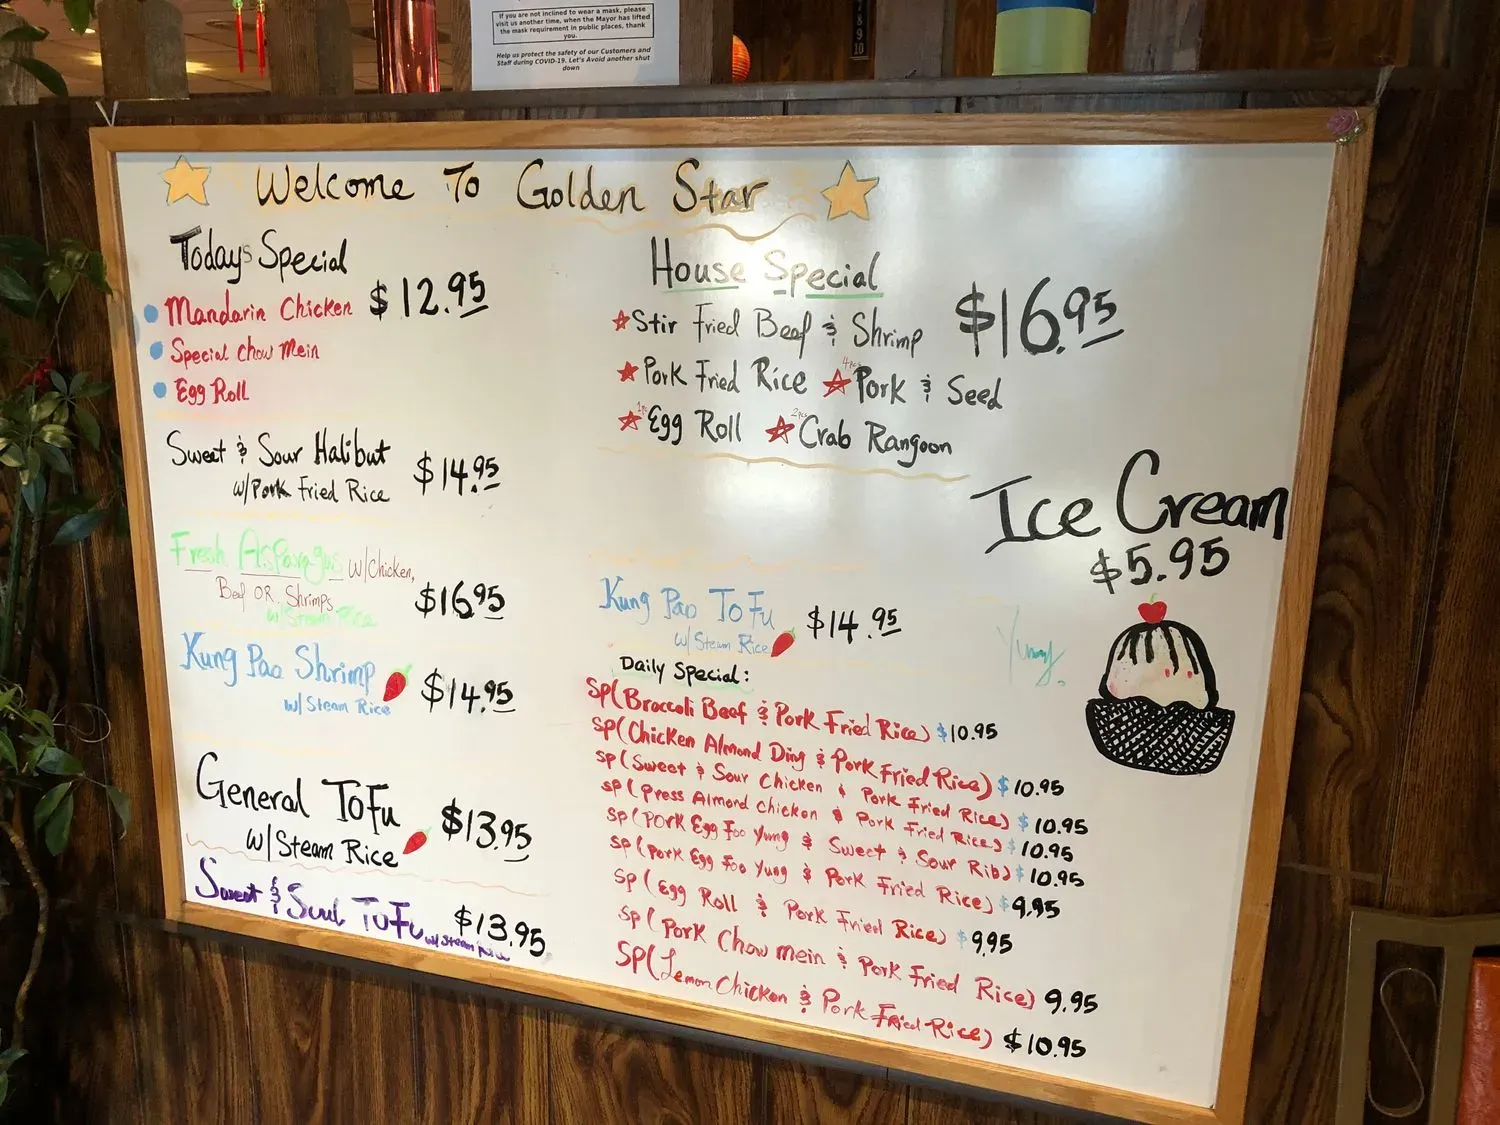 If you are not inclined to wear a mask, please
visit us another time, when the Mayor has lifted
the mask requirement in public places, thank
you.
Help us protect the safety of our Customers and
Staff during COVID-19. Let's Avoid another shut
down
7
8
9
10
Welcome To Golden Star
Todays Special
$12.95
Mandarin Chicken
Special Chow Mein
Egg Roll
Sweet & Sour Halibut
w/Pork Fried Rice
$14.95
Fresh Asparagus w/Chicken,
Beef OR Shrimps
w/Steam Rice
$16.95
Kung Pao Shrimp
w/Steam Rice
$14.95
General ToFu
w/Steam Rice
$13.95
Sweet & Sour ToFu
w/steam Rice
$13.95
House Special
$16.95
Stir Fried Beef & Shrimp
Pork Fried Rice 4pcs Pork & Seed
1pc Egg Roll 2pcs Crab Rangoon
Ice Cream
$5.95
Yummy.
Kung Pao ToFu
w/Steam Rice
$14.95
Daily Special:
SP(Broccoli Beef & Pork Fried Rice) $10.95
SP(Chicken Almond Ding & Pork Fried Rice) $10.95
SP(Sweet & Sour Chicken & Pork Fried Rice) $10.95
SP(Press Almond Chicken & Pork Fried Rice) $10.95
SP(Pork Egg Foo Yung & Sweet & Sour Rib) $10.95
SP(Pork Egg Foo Yung & Pork Fried Rice) $9.95
SP(Egg Roll & Pork Fried Rice) $9.95
SP(Pork Chow Mein & Pork Fried Rice) 9.95
SP(Lemon Chicken & Pork Fried Rice) $10.95